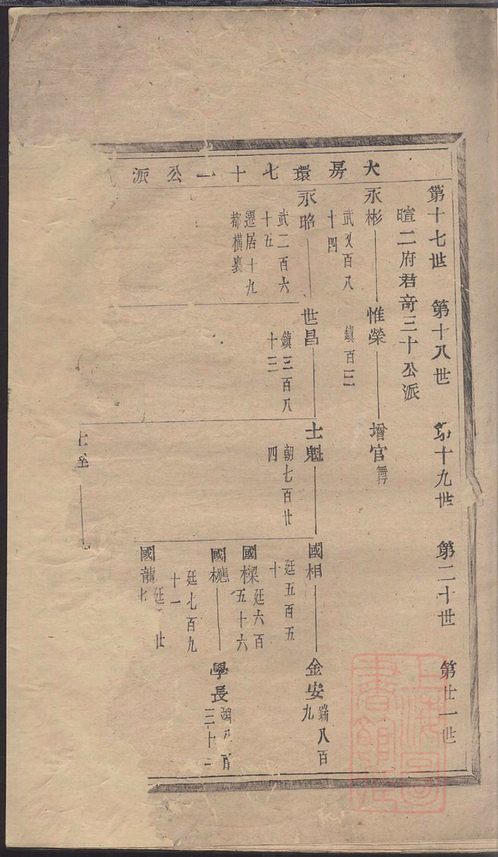 大房環七十一公派
第十七世
第十八世
第十九世
第二十世
第廿一世
暄二府君奇三十公派
永彬
武又百八
十四
惟榮
鎮百三
增官
永昭
武二百六
十五
遷居十九
都橫裏
世昌
鎮三百八
十三
士魁
朝七百廿
四
國相
廷五百五
十
金安
八百
九
國樑
廷六百
五十六
國樾
廷七百九
十一
學長
國龍